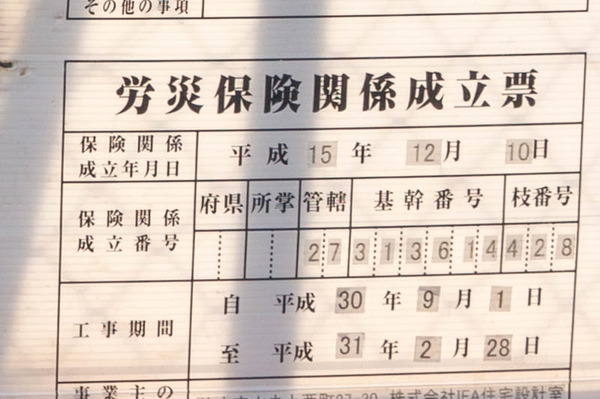 その他の事項
労災保険関係成立票
保険関係成立年月日 平成15年 12月 10日
保険関係成立番号 府県 所掌 管轄 基幹番号 枝番号
27 313614 428
工事期間 自 平成 30年 9月 1日
至 平成 31年 2月 28日
事業主の 株式会社IFA住宅設計室